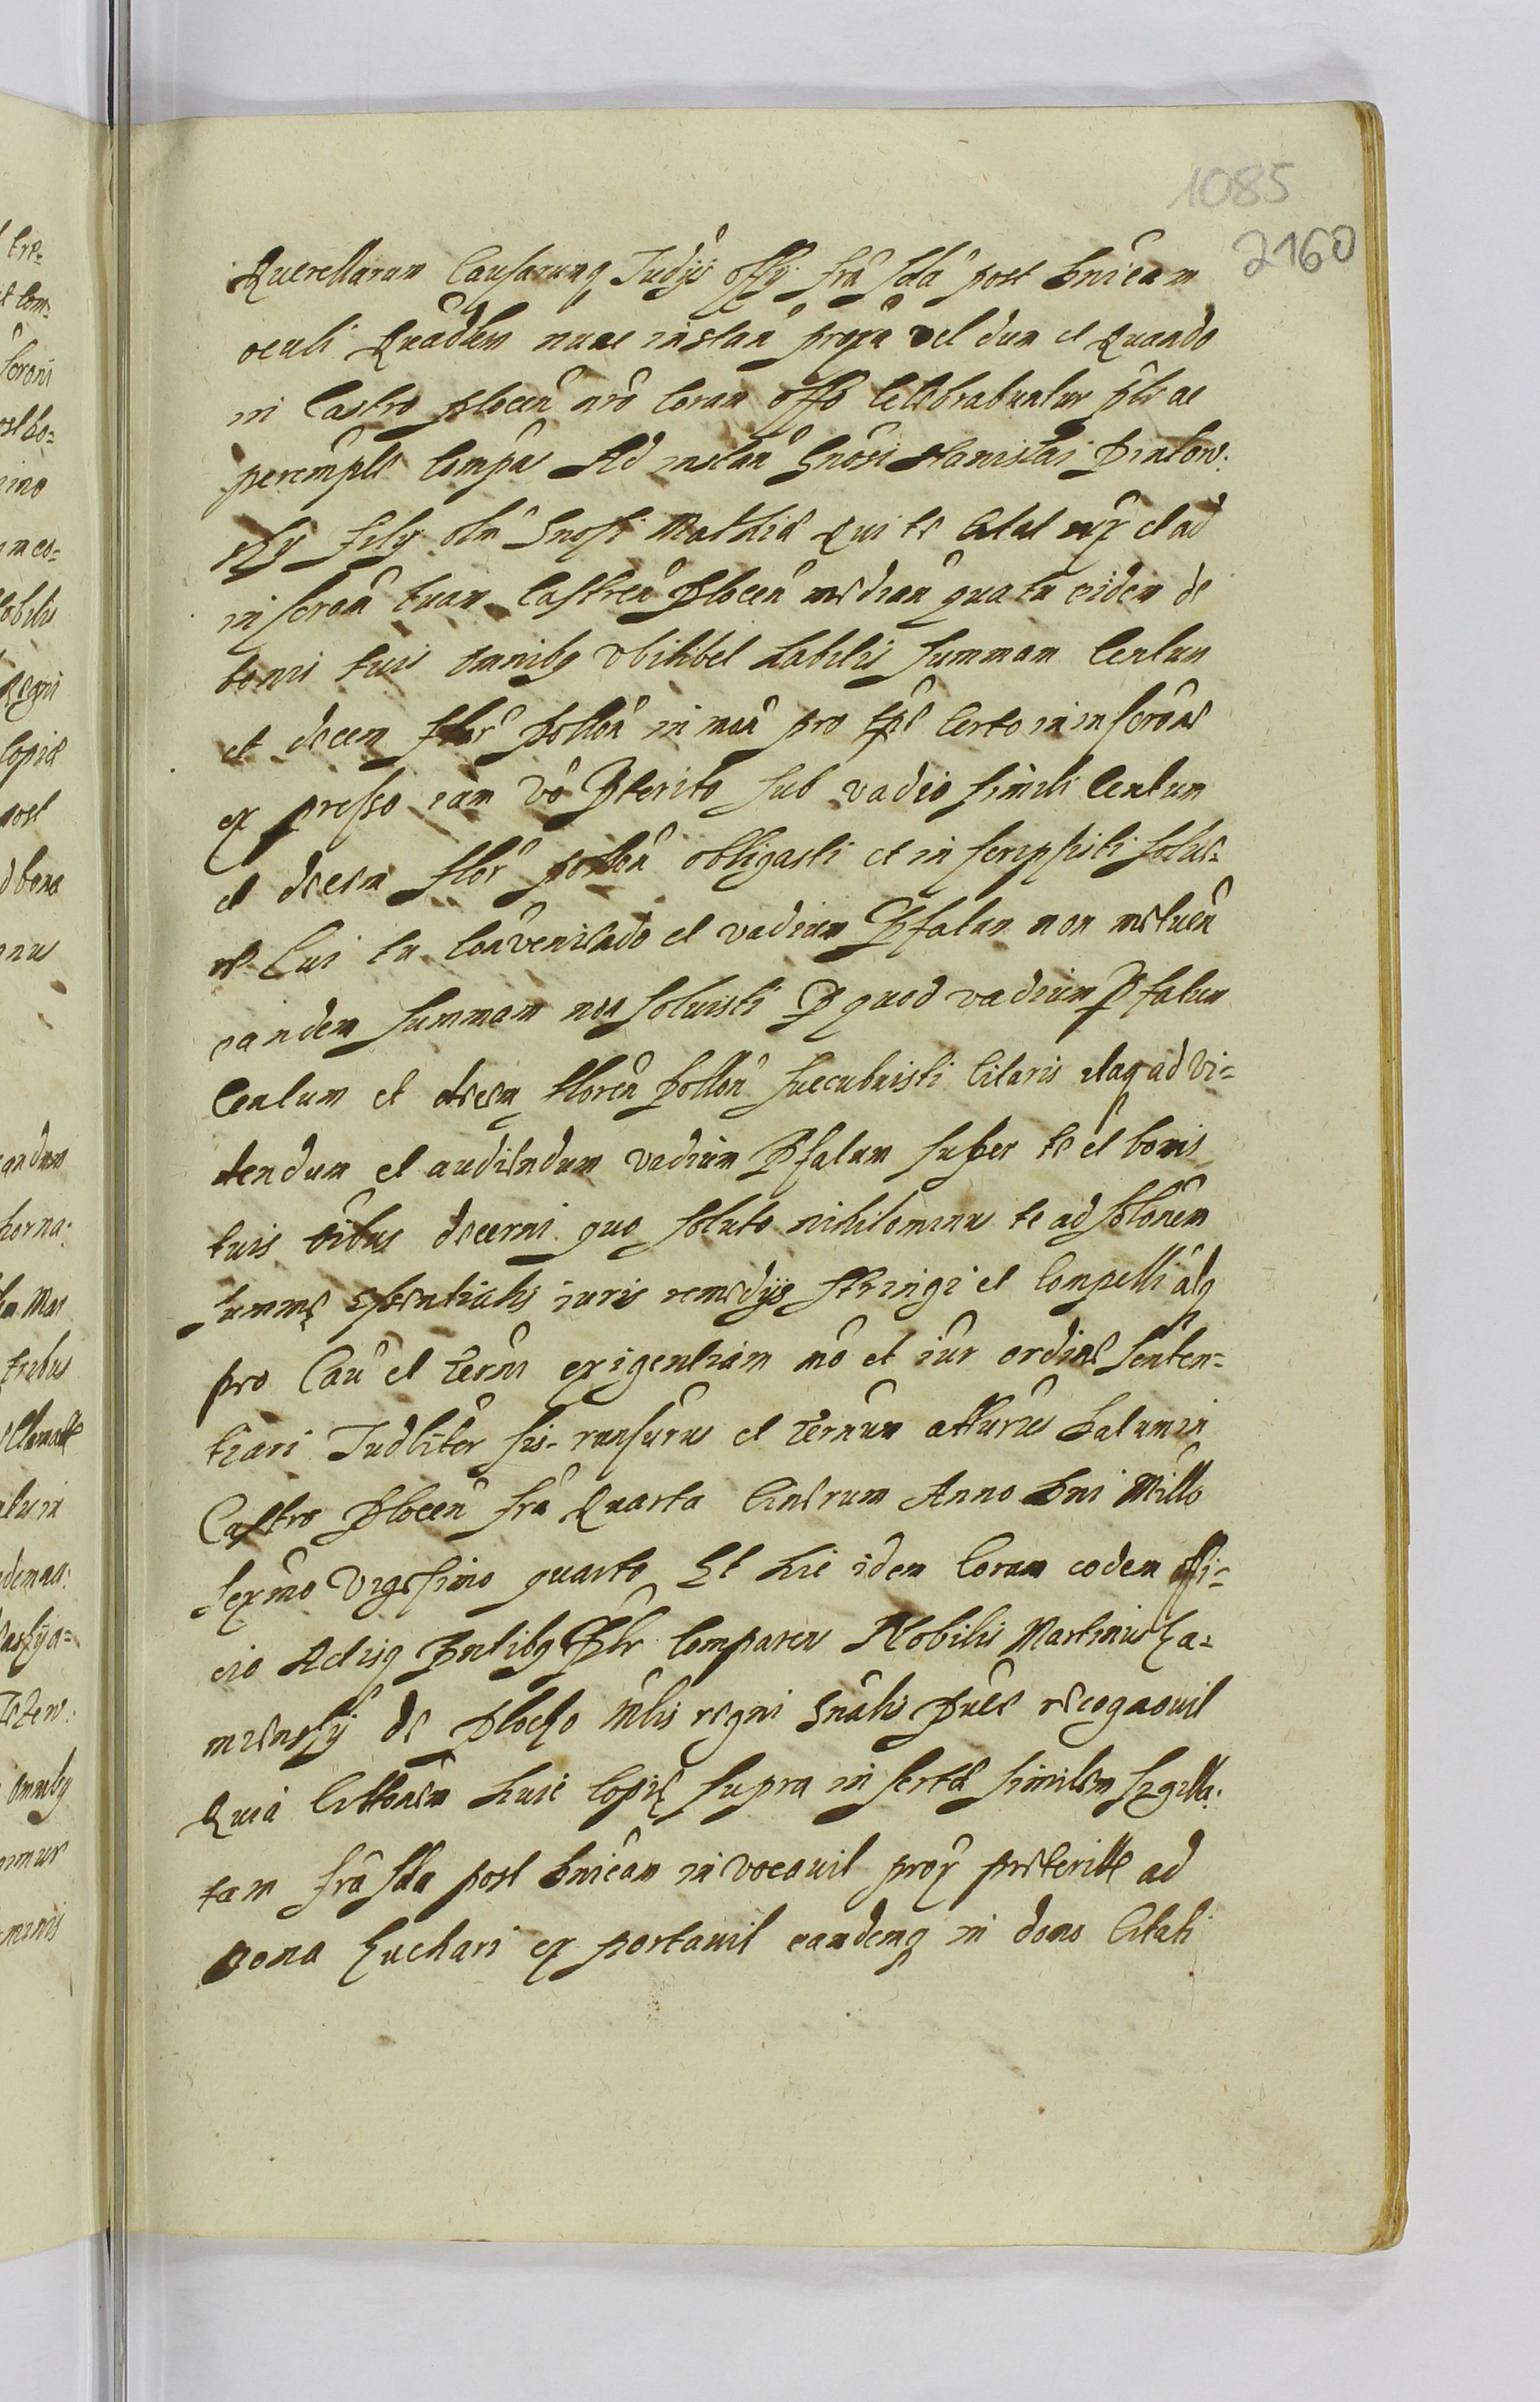 1085
2160
Querellarum Causarumq Judÿs offÿ fra sda post Dnicam
oculi Quadlem nunc instan proxa vel dum et Quando
in Castro plocen nro Coram offo Celebrabuntur pltr ac
peremple Compas Ad instan Gnosi Stanislai Pintow:
skÿ filÿ olim Gnosi Mathiæ Qui te Citat nrx et ad
inscron tuam Castren Plocen median qua tu eidem de
bonis tuis omnibq vbilibet habitis summam Centum
et decem flor pollon in mon pro tpe Certo in inscrone
expresso iam vo Pterito sub vadio simili Centum
et decem flor pollon obligasti et inscripsisti solue-
re Cui tu Conveniendo et vadium Pfatum non metuen
eandem summam non soluisti P quod vadium Pfatum
Centum et decem floren pollon succubuisti Citaris itaq ad vi=
dendum et audiendum vadium Pfatum super te et bonis
tuis oibus decerni quo soluto nihilominus te ad solonem
summe essentialis iuris remedÿs stringi et Compelli alq
pro Cau et termi exigentiam mo et iur ordine senten=
tiari Judliter sis ransurus et termum atturus Datum in
Castro Plocen fra Quarta Cinerum Anno Dni Millo
sexmo Vigesimo quarto Et hic idem Coram eodem offi=
cio Actisq Pntibq Pltr Comparens Nobilis Martinus Ka=
mienskÿ de Plocko mlis regni gnalis Pure recognouit
Quia Cittonem huic Copie supra inserte similem sigilla:
tam fra sda post Dnicam invocauit prox preteritte ad
bona Kuchari exportauit eandemq in domo Citati